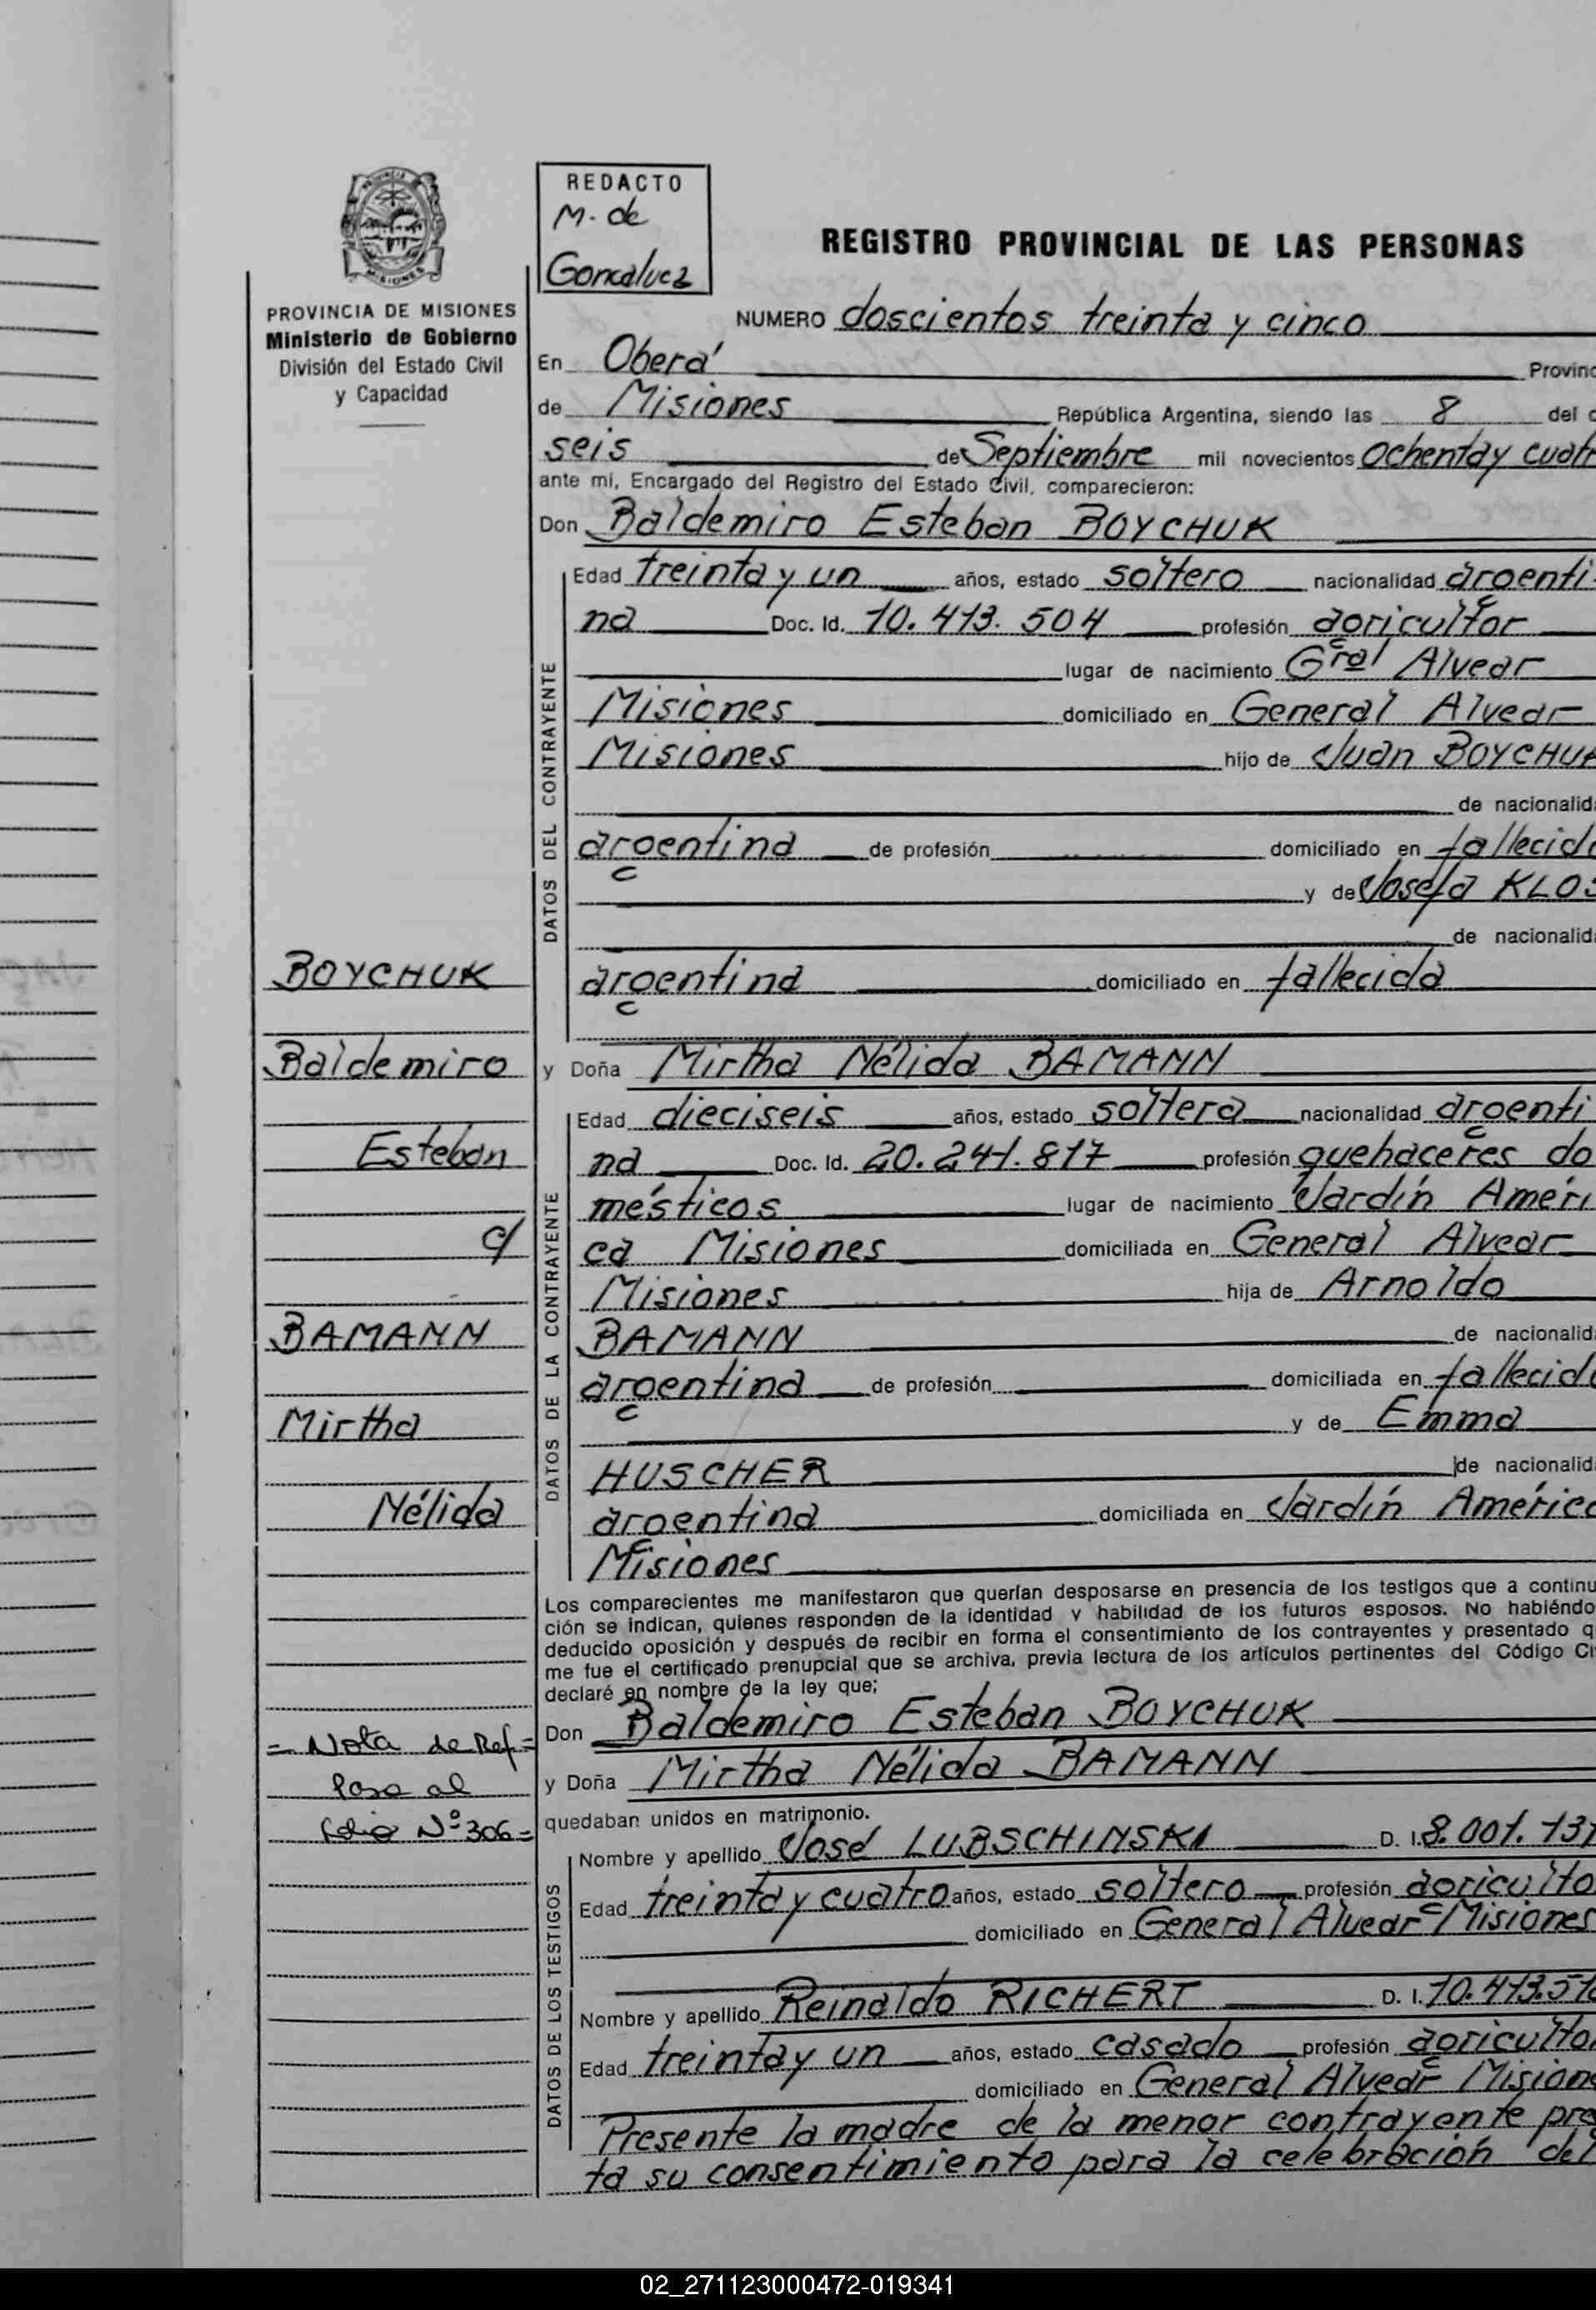 REDACTO
M. de
Goncalvez
PROVINCIA DE MISIONES
Ministerio de Gobierno
División del Estado Civil
y Capacidad
REGISTRO PROVINCIAL DE LAS PERSONAS
NUMERO doscientos treinta y cinco
En Oberá Provinc
de Misiones República Argentina, siendo las 8 del d
seis de Septiembre mil novecientos ochenta y cuatr
ante mí, Encargado del Registro del Estado Civil, comparecieron:
Don Baldemiro Esteban BOYCHUK
DATOS DEL CONTRAYENTE
Edad treinta y un años, estado soltero nacionalidad argenti
na Doc. Id. 10.413.504 profesión agricultor
lugar de nacimiento Gral Alvear
Misiones domiciliado en General Alvear
Misiones hijo de Juan BOYCHUK
de nacionalida
argentina de profesión domiciliado en fallecido
y de Josefa KLOS
de nacionalida
argentina domiciliado en fallecida
y Doña Mirtha Nélida BAMANN
DATOS DE LA CONTRAYENTE
Edad dieciseis años, estado soltera nacionalidad argenti
na Doc. Id. 20.241.817 profesión quehaceres do
mésticos lugar de nacimiento Jardín Améri
ca Misiones domiciliada en General Alvear
Misiones hija de Arnoldo
BAMANN de nacionalida
argentina de profesión domiciliada en fallecido
y de Emma
HUSCHER de nacionalida
argentina domiciliada en Jardín América
Misiones
Los comparecientes me manifestaron que querían desposarse en presencia de los testigos que a continu
ción se indican, quienes responden de la identidad y habilidad de los futuros esposos. No habiéndo
deducido oposición y después de recibir en forma el consentimiento de los contrayentes y presentado q
me fue el certificado prenupcial que se archiva, previa lectura de los artículos pertinentes del Código Ci
declaré en nombre de la ley que;
Don Baldemiro Esteban BOYCHUK
y Doña Mirtha Nélida BAMANN
quedaban unidos en matrimonio.
DATOS DE LOS TESTIGOS
Nombre y apellido José LUBSCHINSKI D. I. 8.001.131
Edad treinta y cuatro años, estado soltero profesión agriculto
domiciliado en General Alvear Misiones
Nombre y apellido Reinaldo RICHERT D. I. 10.413.51
Edad treinta y un años, estado casado profesión agriculto
domiciliado en General Alvear Misione
Presente la madre de la menor contrayente pre
ta su consentimiento para la celebración del
BOYCHUK
Baldemiro
Esteban
c/
BAMANN
Mirtha
Nélida
= Nota de Ref. =
Pasa al
folio Nº 306 =
02_271123000472-019341